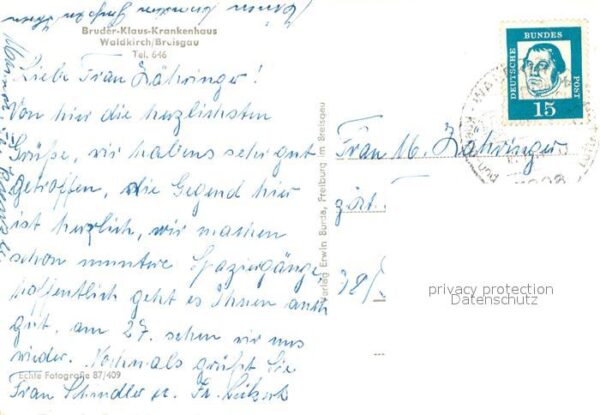 Bruder-Klaus-Krankenhaus
Waldkirch/Breisgau
Tel. 646
Liebe Frau Zähringer!
Von hier die herzlichsten
Grüße, wir habens sehr gut
getroffen, die Gegend hier
ist herrlich, wir machen
schon muntere Spaziergänge
hoffentlich geht es Ihnen auch
gut, am 27. sehen wir uns
wieder. Nochmals grüßt Sie
Frau Schindler
Echte Fotografie 87/409
Verlag Erwin Burda, Freiburg im Breisgau
DEUTSCHE BUNDES POST
15
Frau M. Zähringer
privacy protection
Datenschutz